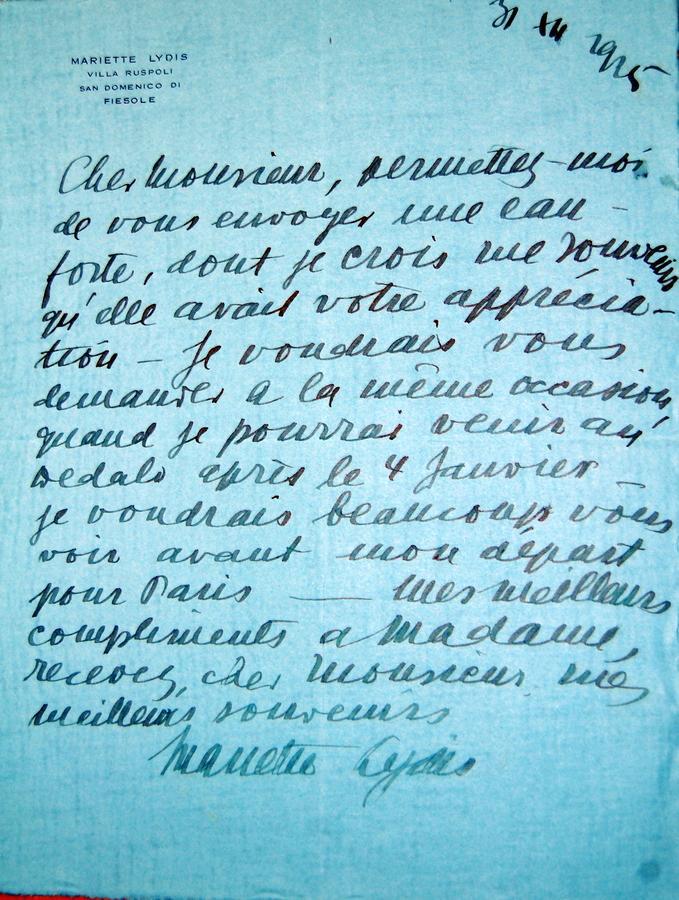 31 XII 1925
MARIETTE LYDIS
VILLA RUSPOLI
SAN DOMENICO DI
FIESOLE
Cher Monsieur, permettez-moi
de vous envoyer une eau-
forte, dont je crois me souvenir
qu'elle avait votre apprécia-
tion — Je voudrais vous
demander a la même occasion
quand je pourrai venir au
Dedalo après le 4 Janvier —
je voudrais beaucoup vous
voir avant mon départ
pour Paris — Mes meilleurs
compliments a Madame,
recevez, cher Monsieur, mes
meilleurs souvenirs
Mariette Lydis